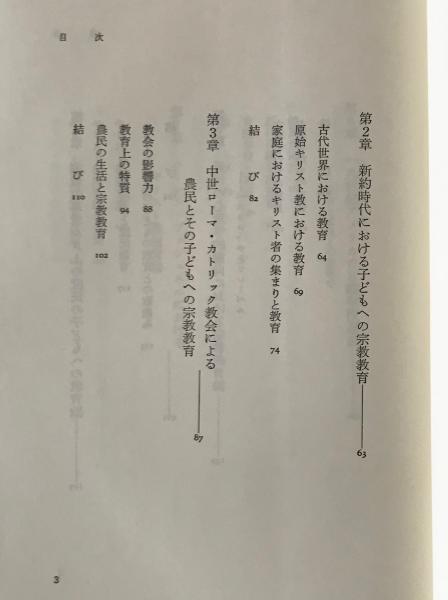 目次
第2章 新約時代における子どもへの宗教教育――63
古代世界における教育 64
原始キリスト教における教育 69
家庭におけるキリスト者の集まりと教育 74
結び 82
第3章 中世ローマ・カトリック教会による
農民とその子どもへの宗教教育――87
教会の影響力 88
教育上の特質 94
農民の生活と宗教教育 102
結び 110
3